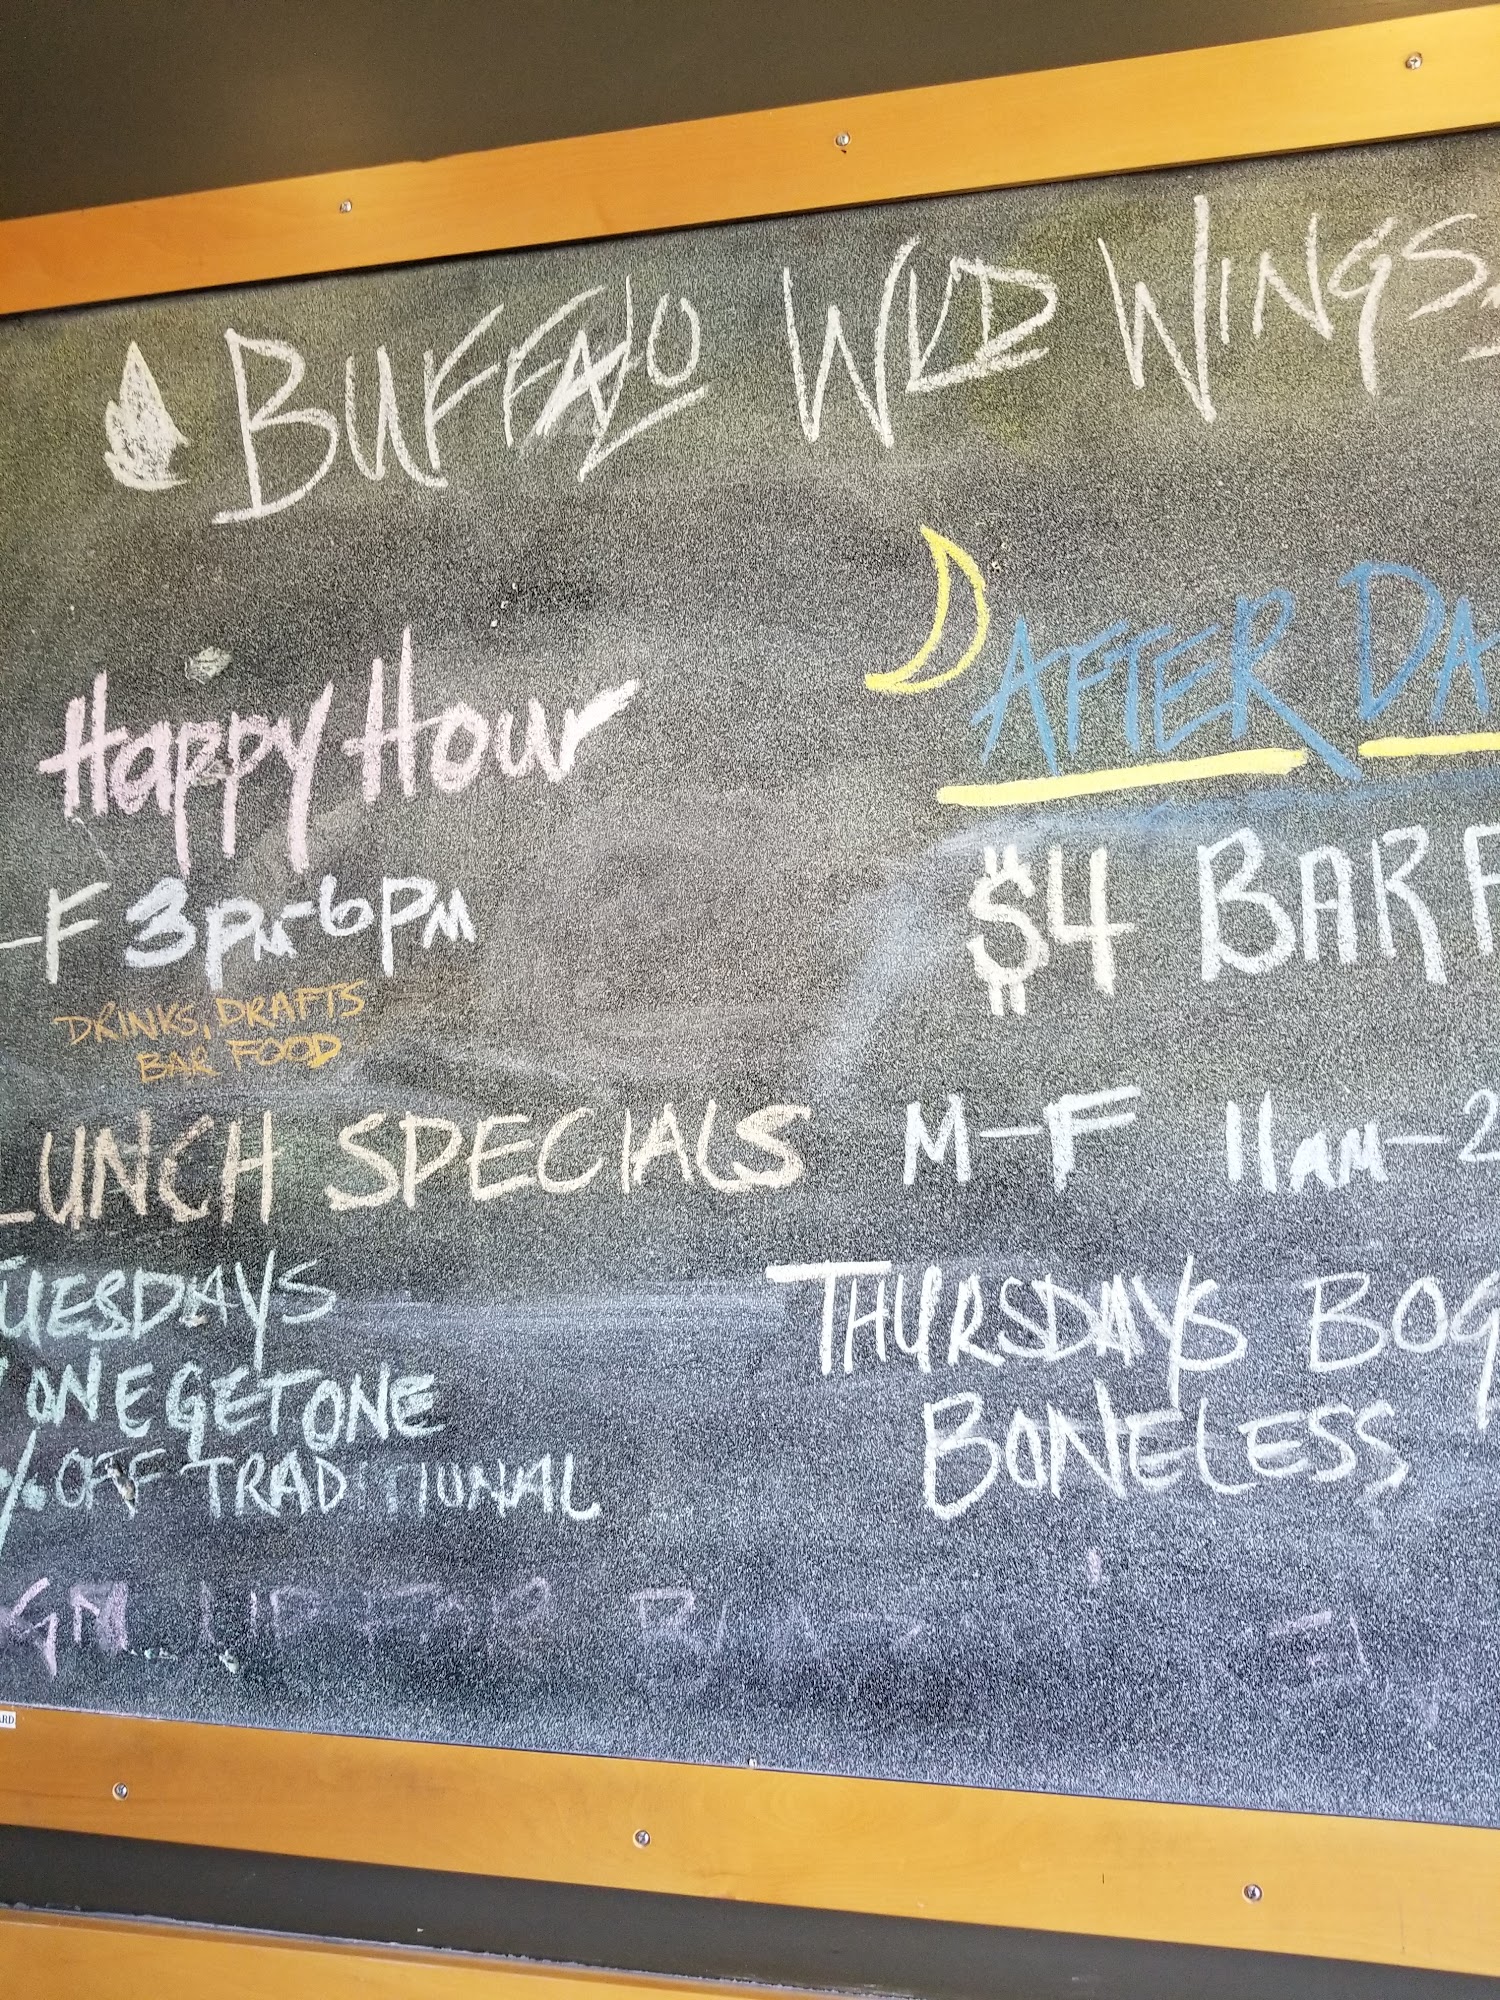 BUFFALO WILD WINGS
Happy Hour
-F 3PM-6PM
DRINKS, DRAFTS
BAR FOOD
AFTER DA
$4 BAR F
LUNCH SPECIALS M-F 11AM-2
TUESDAYS
ONE GET ONE
% OFF TRADITIONAL
THURSDAYS BOG
BONELESS
GN UP FOR
ARD